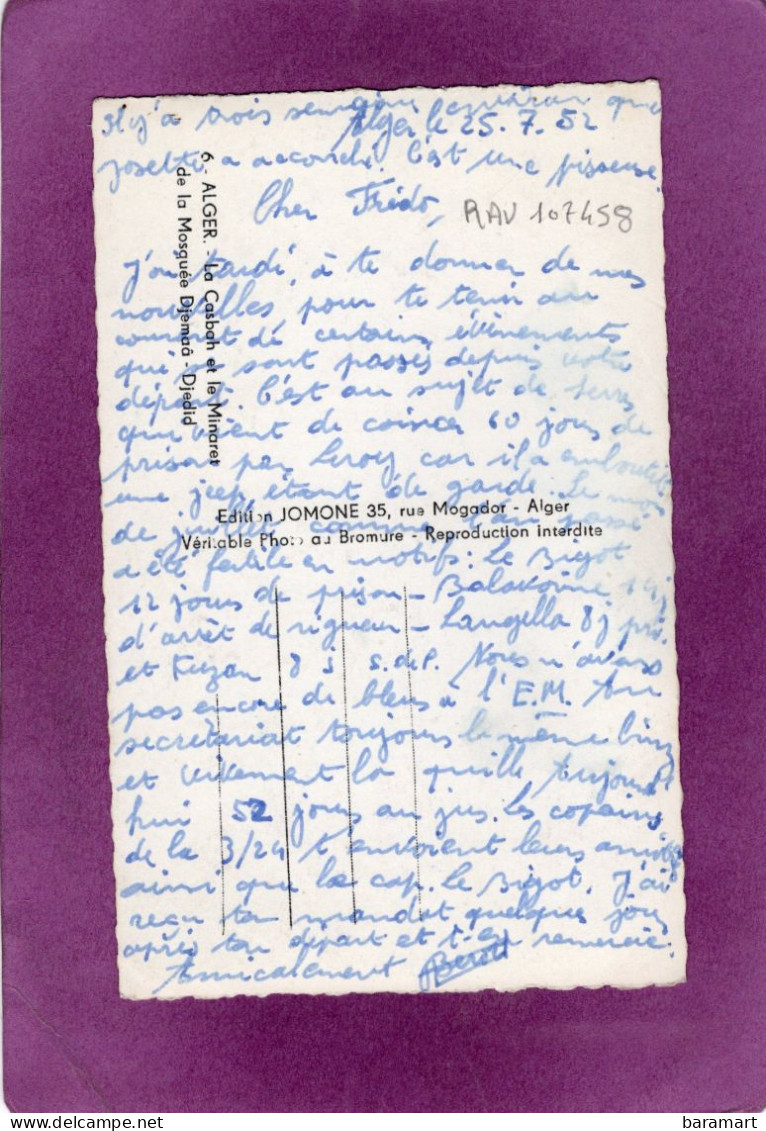 Il y a trois semaines environ que
Alger le 25.7.52
Josette a accouché. C'est une pisseuse.
Cher Frédo,
RAV 107458
6 - ALGER. - La Casbah et le Minaret
de la Mosquée Djemaâ - Djedid
J'ai tardé, à te donner de mes
nouvelles, pour te tenir au
courant de certains évènements
qui se sont passés depuis votre
départ. C'est au sujet de Serres
qui vient de coincer 60 jours de
prison par Leroy car il a embouti
une jeep étant de garde. Le
de juillet comme l'an passé
Edition JOMONE 35, rue Mogador - Alger
Véritable Photo au Bromure - Reproduction interdite
a été fertile en motifs : Le Bigot
12 jours de prison -
d'arrêt de rigueur - Langella 8j
et Kuzan 8 j S. de P. Nous n'avons
pas encore de bleus à l'E.M. Au
secrétariat toujours le même
et vivement la quille Aujourd'
hui 52 jours au jus. Les copains
de la 3/24 t'envoient leurs
ainsi que le cap. le Bigot. J'ai
reçu ton mandat quelques jours
après ton départ et t'en remercie.
Amicalement
baramart